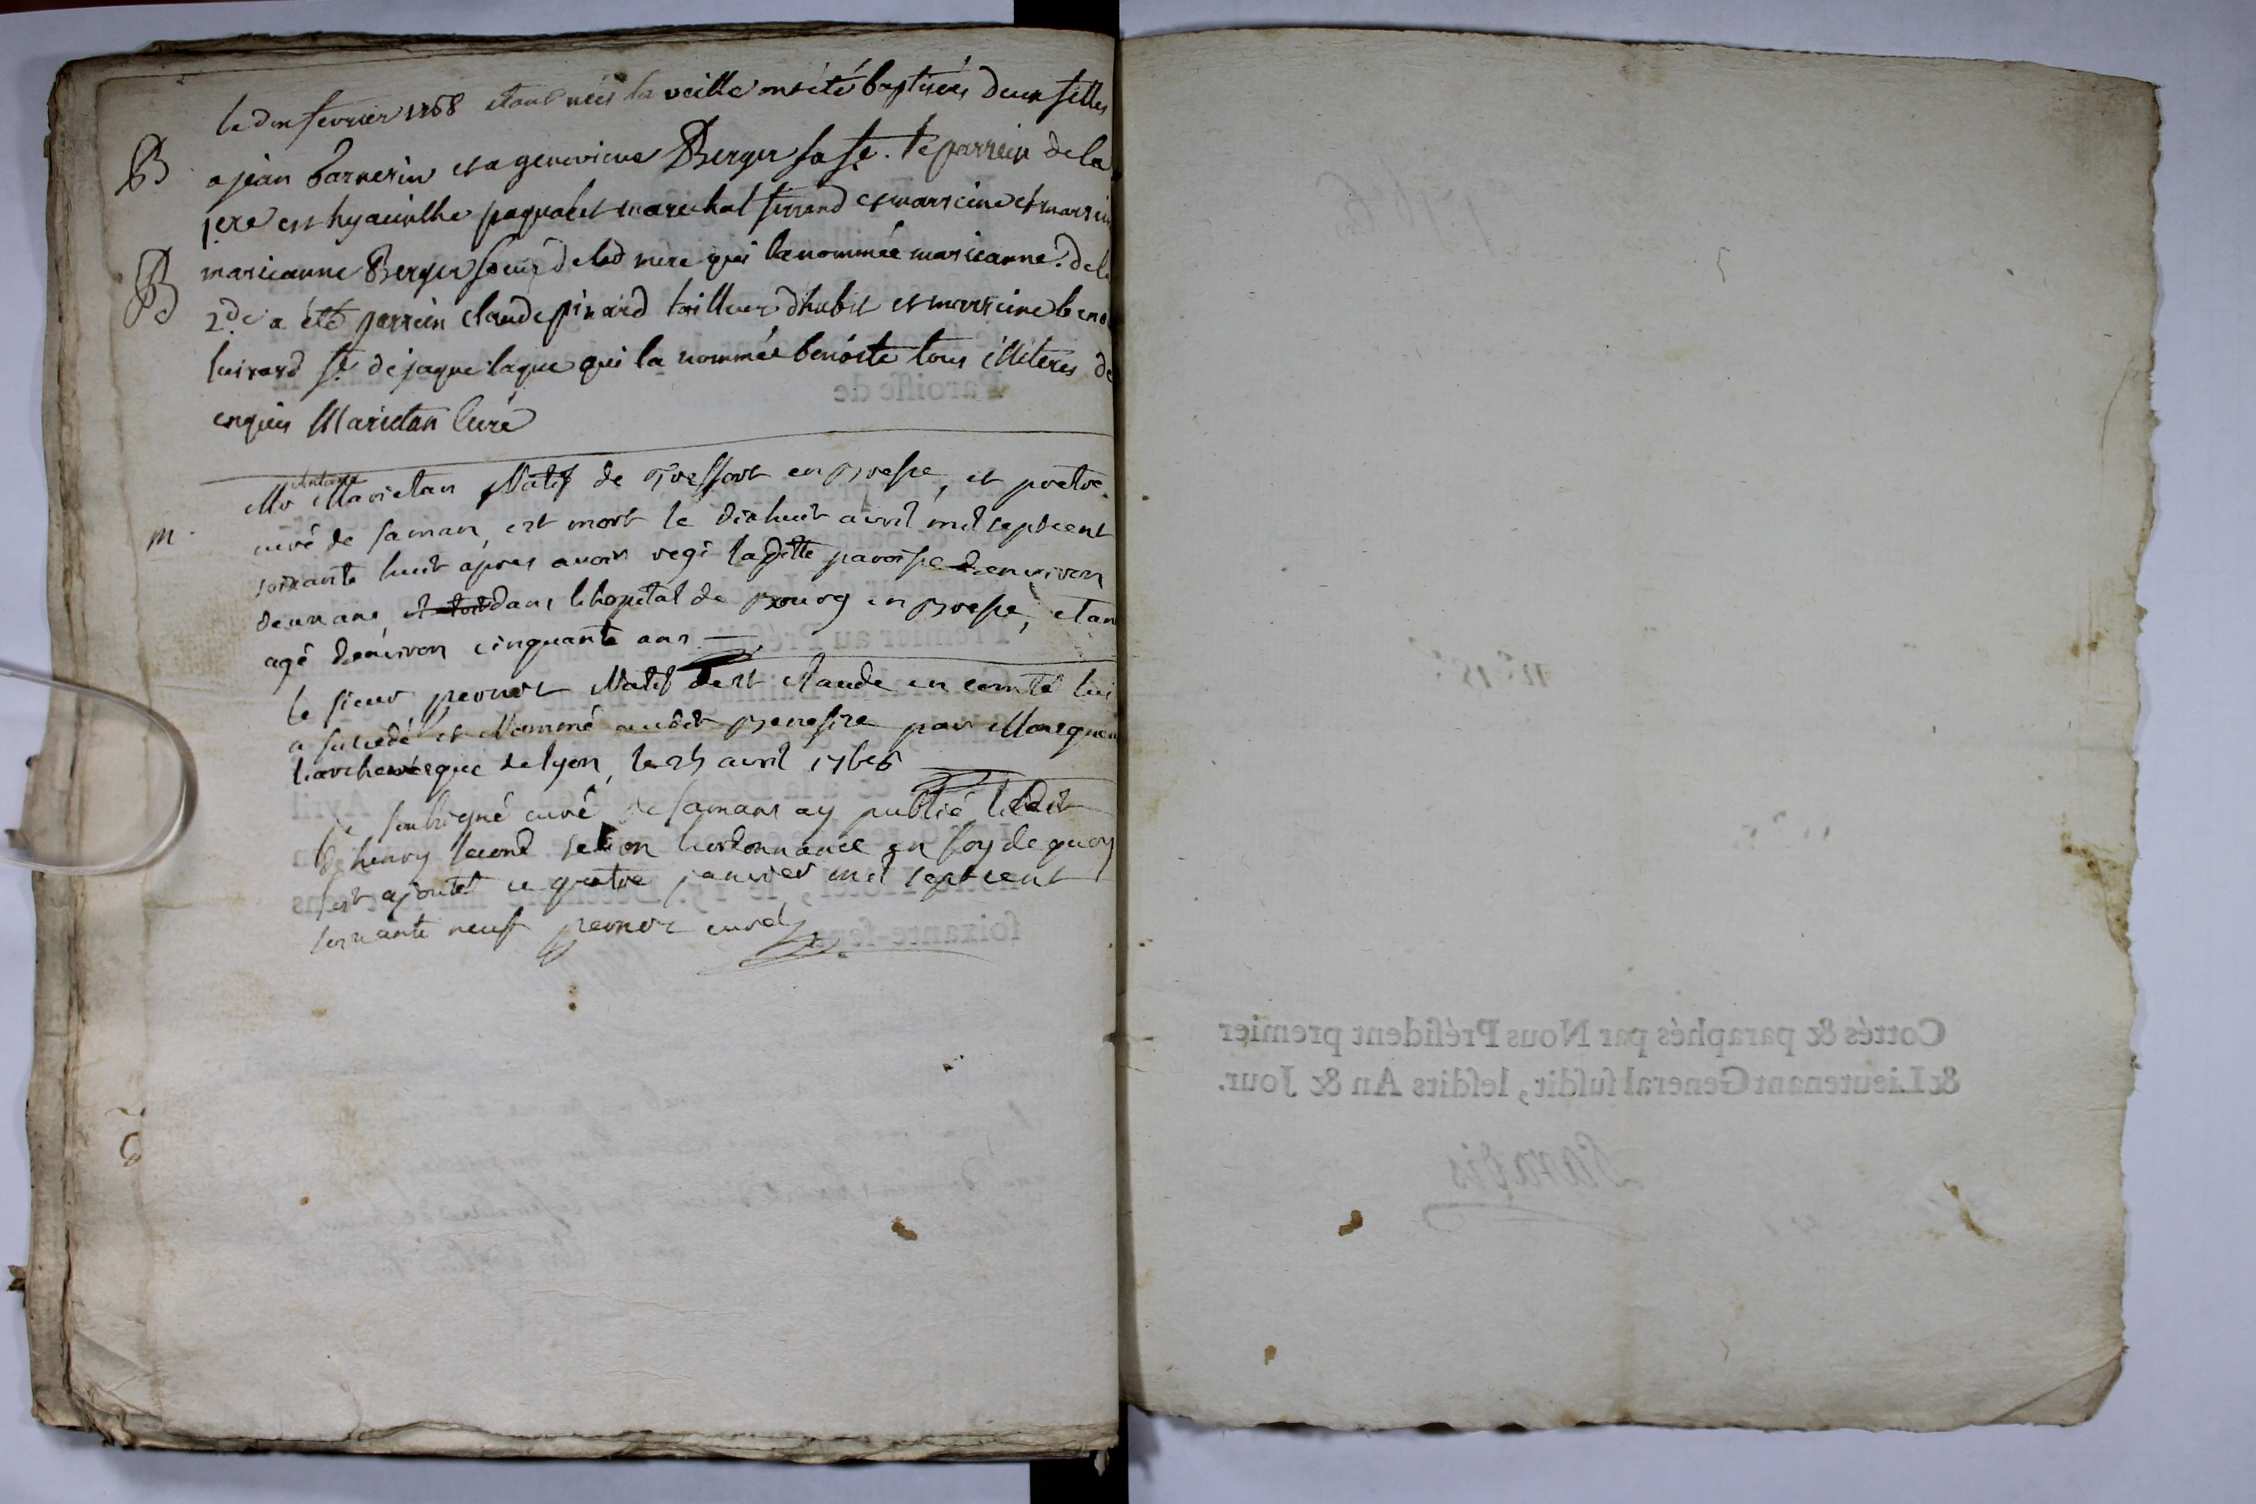 le dix fevrier 1768 etant nées la veille ont été baptisées deux filles
B a jean barnerin et a genevieve Berger sa fe. le parrein de la
1ere est hyacinthe paquelet marechal ferrand et marreine et marrein
B marieanne Berger soeur de lad mere qui la nommée marieanne. de la
2de a été parrein claude pinard tailleur dhabit et marreine beno
fe de jaque laque qui la nommée benoite tous illiteres de
enquis Marietan Curé
antoine
m. Mr Marietan Natif de Treffort en Bresse, et pretre
curé de Samans, est mort le dixhuit avril mil septcent
soixante huit apres avoir regi laditte paroisse denviron
deux ans, dans lhopital de Bourg en Bresse, etan
agé denviron cinquante ans
le sieur pernet Natif de st claude en comté lui
a succedé et Nommé audit Benefice par
larcheveque de lyon, le 25 avril 1768
je soubsigné curé de Samans ay publié lédit
de henry second selon lordonnance en foy de quoy
ce quatre janvier mil septcent
soixante neuf pernet curé
Paroisse de
Cottés & paraphés par Nous Président premier
& Lieutenant General susdit, lesdits An & Jour.